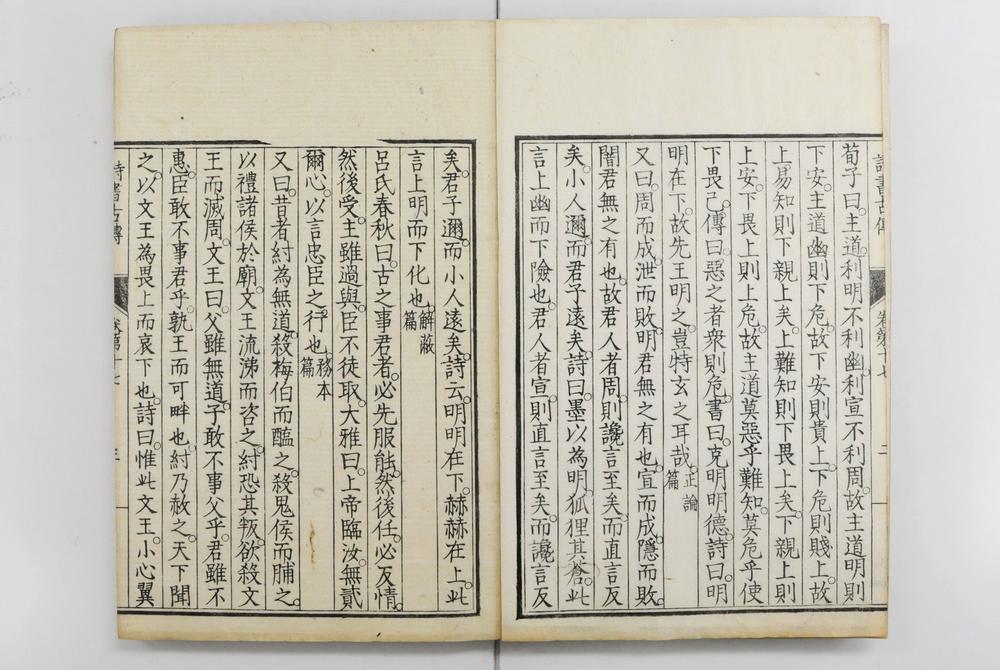 荀子曰。主道利明不利幽。利宣不利周。故主道明則
下安。主道幽則下危。故下安則貴上。下危則賤上。故
上易知則下親上矣。上難知則下畏上矣。下親上則
上安。下畏上則上危。故主道莫惡乎難知。莫危乎使
下畏己。傳曰。惡之者衆則危。書曰。克明明德。詩曰。明
明在下。故先王明之。豈特玄之耳哉。正論篇
又曰。周而成。泄而敗。明君無之有也。宣而成。隱而敗。
闇君無之有也。故君人者周。則讒言至矣。而直言反
矣。小人邇。而君子遠矣。詩曰。墨以為明。狐狸其蒼。此
言上幽而下險也。君人者宣。則直言至矣。而讒言反
詩書古傳 卷第十七 二
矣。君子邇。而小人遠矣。詩云。明明在下。赫赫在上。此
言上明而下化也。解蔽篇
呂氏春秋曰。古之事君者。必先服能。然後任。必反情。
然後受。主雖過與。臣不徒取。大雅曰。上帝臨汝。無貳
爾心。以言忠臣之行也。務本篇
又曰。昔者紂為無道。殺梅伯而醢之。殺鬼侯而脯之。
以禮諸侯於廟。文王流涕而咨之。紂恐其叛。欲殺文
王而滅周。文王曰。父雖無道。子敢不事父乎。君雖不
惠。臣敢不事君乎。孰王而可畔也。紂乃赦之。天下聞
之。以文王為畏上而哀下也。詩曰。惟此文王。小心翼
詩書古傳 卷第十七 三